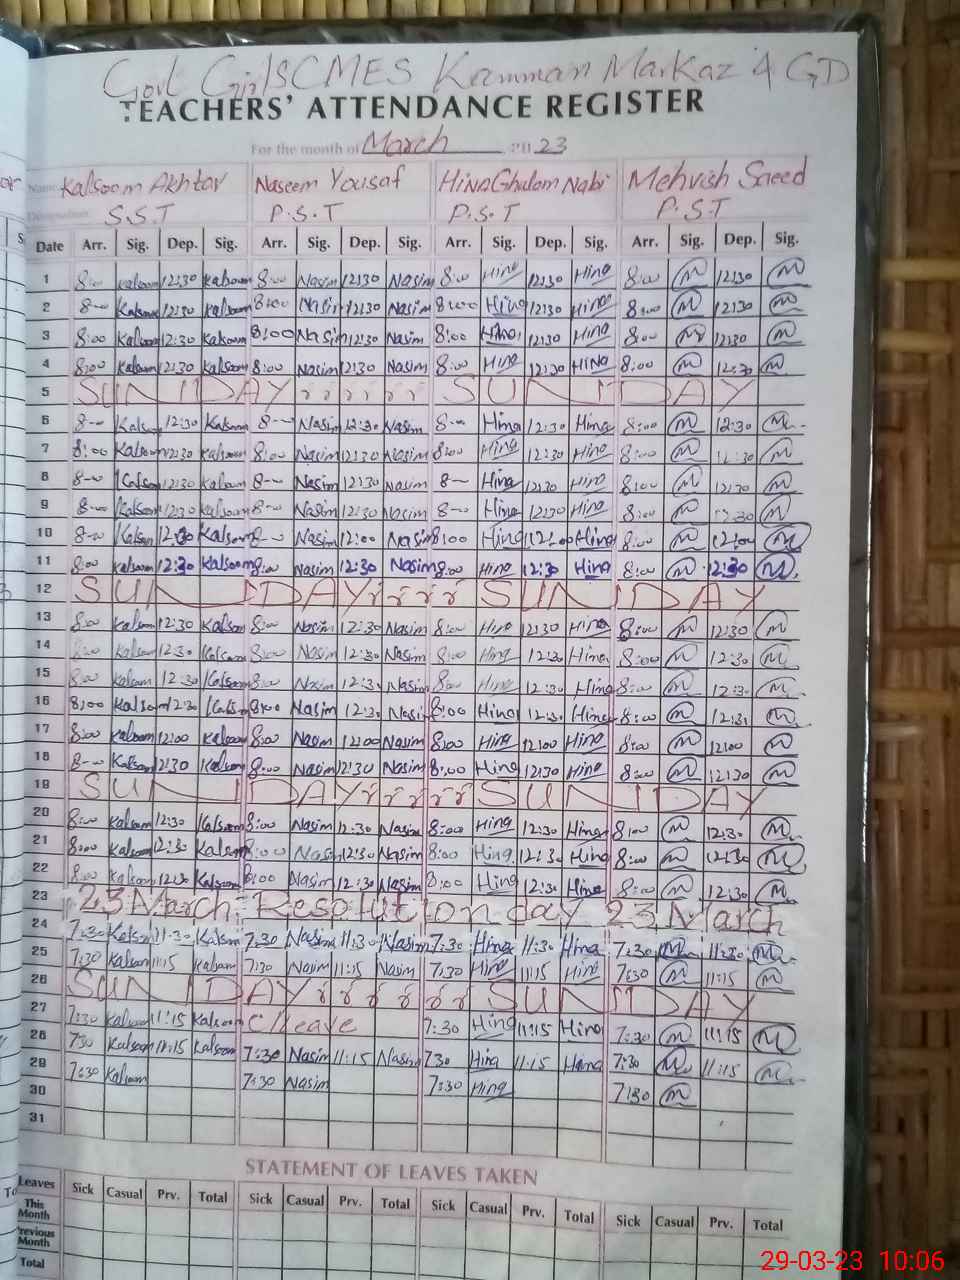 Govt Girls CMES Kamman Markaz 4 GD
TEACHERS' ATTENDANCE REGISTER
For the month of March 2023
Name Kalsoom Akhtar Naseem Yousaf Hina Ghulam Nabi Mehvish Saeed
Designation S.S.T P.S.T P.S.T P.S.T
Date Arr. Sig. Dep. Sig. Arr. Sig. Dep. Sig. Arr. Sig. Dep. Sig. Arr. Sig. Dep. Sig.
1 8:00 Kalsoom 12:30 Kalsoom 8:00 Nasim 12:30 Nasim 8:00 Hina 12:30 Hina 8:00 M 12:30 M
2 8-00 Kalsoom 12:30 Kalsoom 8:00 Nasim 12:30 Nasim 8:00 Hina 12:30 Hina 8:00 M 12:30 M
3 8:00 Kalsoom 12:30 Kalsoom 8:00 Nasim 12:30 Nasim 8:00 Hina 12:30 Hina 8:00 M 12:30 M
4 8:00 Kalsoom 12:30 Kalsoom 8:00 Nasim 12:30 Nasim 8:00 Hina 12:30 Hina 8:00 M 12:30 M
5 SUNDAY SUNDAY
6 8-00 Kalsoom 12:30 Kalsoom 8-00 Nasim 12:30 Nasim 8-00 Hina 12:30 Hina 8:00 M 12:30 M
7 8:00 Kalsoom 12:30 Kalsoom 8:00 Nasim 12:30 Nasim 8:00 Hina 12:30 Hina 8:00 M 12:30 M
8 8-00 Kalsoom 12:30 Kalsoom 8-00 Nasim 12:30 Nasim 8- Hina 12:30 Hina 8:00 M 12:30 M
9 8-00 Kalsoom 12:30 Kalsoom 8-00 Nasim 12:30 Nasim 8-00 Hina 12:30 Hina 8:00 M 12:30 M
10 8-00 Kalsoom 12:30 Kalsoom 8-00 Nasim 12:00 Nasim 8:00 Hina 12:00 Hina 8:00 M 12:00 M
11 8:00 Kalsoom 12:30 Kalsoom 8:00 Nasim 12:30 Nasim 8:00 Hina 12:30 Hina 8:00 M 12:30 M
12 SUNDAY SUNDAY
13 8:00 Kalsoom 12:30 Kalsoom 8:00 Nasim 12:30 Nasim 8:00 Hina 12:30 Hina 8:00 M 12:30 M
14 8:00 Kalsoom 12:30 Kalsoom 8:00 Nasim 12:30 Nasim 8:00 Hina 12:30 Hina 8:00 M 12:30 M
15 8:00 Kalsoom 12:30 Kalsoom 8:00 Nasim 12:30 Nasim 8:00 Hina 12:30 Hina 8:00 M 12:30 M
16 8:00 Kalsoom 12:30 Kalsoom 8:00 Nasim 12:30 Nasim 8:00 Hina 12:30 Hina 8:00 M 12:30 M
17 8:00 Kalsoom 12:00 Kalsoom 8:00 Nasim 12:00 Nasim 8:00 Hina 12:00 Hina 8:00 M 12:00 M
18 8-00 Kalsoom 12:30 Kalsoom 8:00 Nasim 12:30 Nasim 8:00 Hina 12:30 Hina 8:00 M 12:30 M
19 SUNDAY SUNDAY
20 8:00 Kalsoom 12:30 Kalsoom 8:00 Nasim 12:30 Nasim 8:00 Hina 12:30 Hina 8:00 M 12:30 M
21 8:00 Kalsoom 12:30 Kalsoom 8:00 Nasim 12:30 Nasim 8:00 Hina 12:30 Hina 8:00 M 12:30 M
22 8:00 Kalsoom 12:00 Kalsoom 8:00 Nasim 12:30 Nasim 8:00 Hina 12:30 Hina 8:00 M 12:30 M
23 23 March: Resolution day 23 March
24 7:30 Kalsoom 11:30 Kalsoom 7:30 Nasim 11:30 Nasim 7:30 Hina 11:30 Hina 7:30 M 11:30 M
25 7:30 Kalsoom 11:15 Kalsoom 7:30 Nasim 11:15 Nasim 7:30 Hina 11:15 Hina 7:30 M 11:15 M
26 SUNDAY SUNDAY
27 7:30 Kalsoom 11:15 Kalsoom C/leave 7:30 Hina 11:15 Hina 7:30 M 11:15 M
28 7:30 Kalsoom 11:15 Kalsoom 7:30 Nasim 11:15 Nasim 7:30 Hina 11:15 Hina 7:30 M 11:15 M
29 7:30 Kalsoom 7:30 Nasim 7:30 Hina 7:30 M
30
31
STATEMENT OF LEAVES TAKEN
Leaves Sick Casual Prv. Total Sick Casual Prv. Total Sick Casual Prv. Total Sick Casual Prv. Total
This Month
Previous Month
Total
29-03-23 10:06